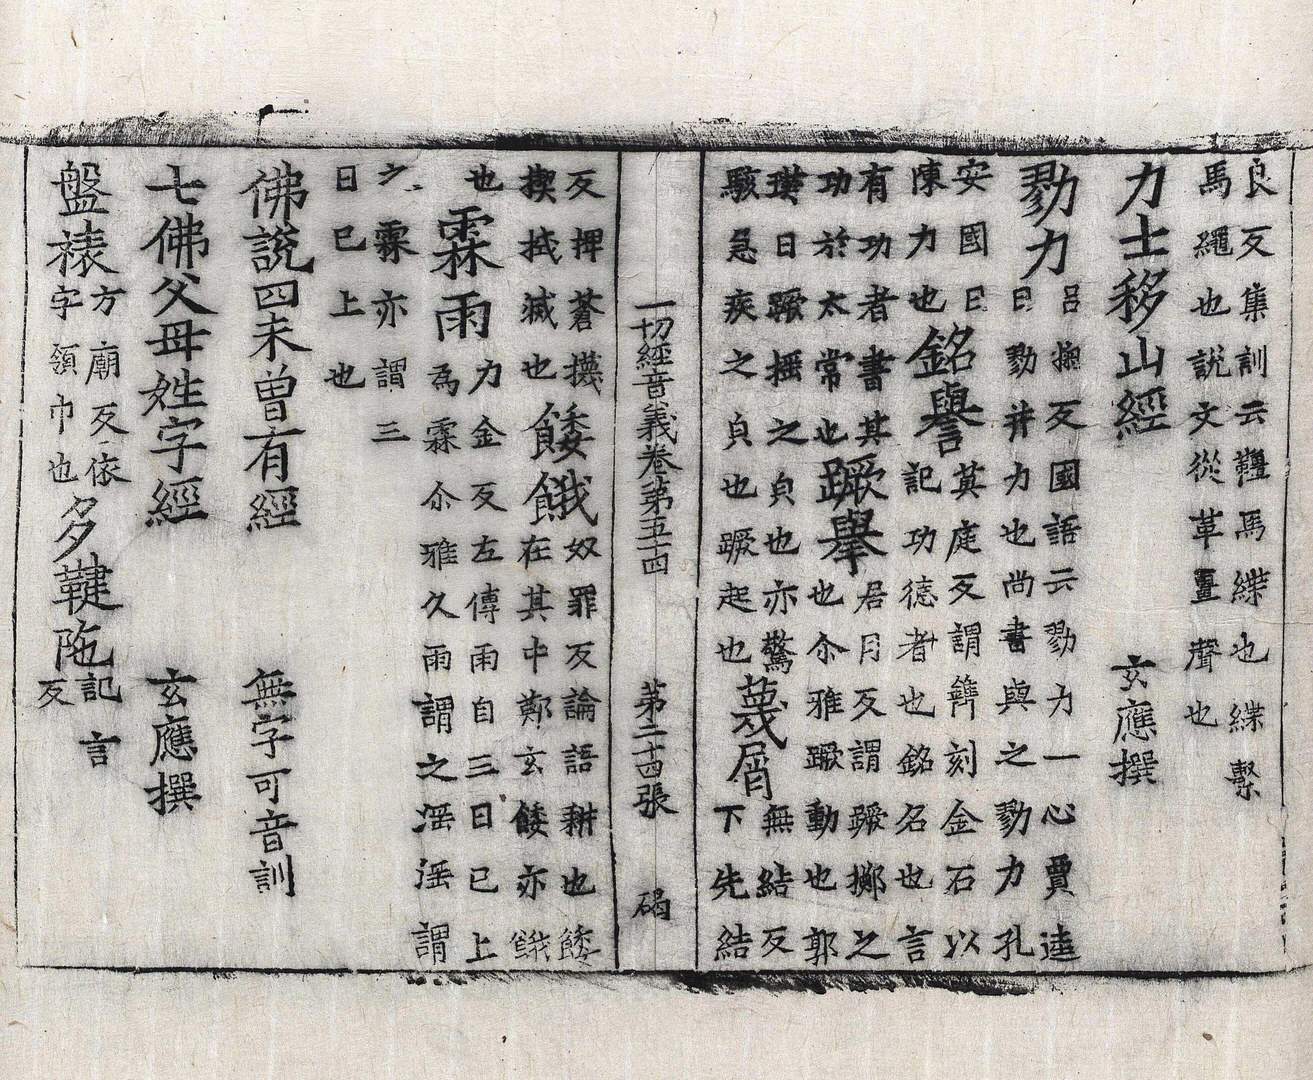 良反集訓云韁馬緤也緤繫
馬繩也說文從革畺聲也
力士移山經 玄應撰
勠力 呂掬反國語云勠力一心賈逵
曰勠并力也尚書與之勠力孔
安國曰
陳力也 銘譽 莫庭反謂鐫刻金石以
記功德者也銘名也言
有功者書其
功於太常也 蹶舉 居月反謂蹶擲之
也尒雅蹶動也郭
璞曰蹶揺之皃也亦驚
駭急疾之皃也蹶起也 蔑屑 無結反
下先結
一切經音義卷第五十四 第二十四張 碣
反捭蒼㩢
揳拭滅也 餧餓 奴罪反論語耕也餧
在其中鄭玄餧亦餓
也 霖雨 力金反左傳雨自三日已上
爲霖尒雅久雨謂之淫淫謂
之霖亦謂三
日已上也
佛說四未曾有經 無字可音訓
七佛父母姓字經 玄應撰
盤裱 方廟反依
字領巾也 多鞬陁 記言
反